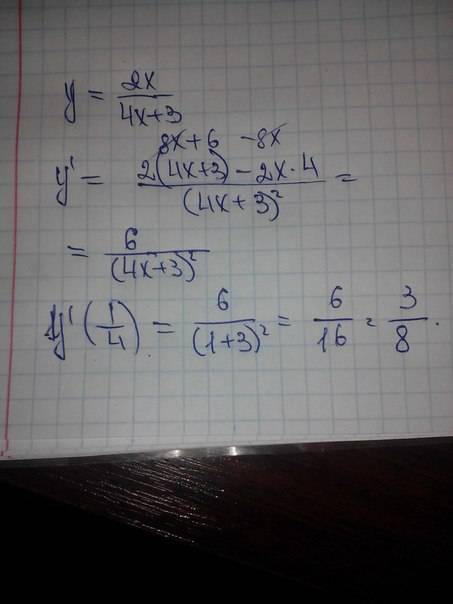 y = 2x/(4x+3)
8x+6 -8x
y' = (2(4x+3) - 2x·4)/(4x+3)² =
= 6/(4x+3)²
y'(1/4) = 6/(1+3)² = 6/16 = 3/8.